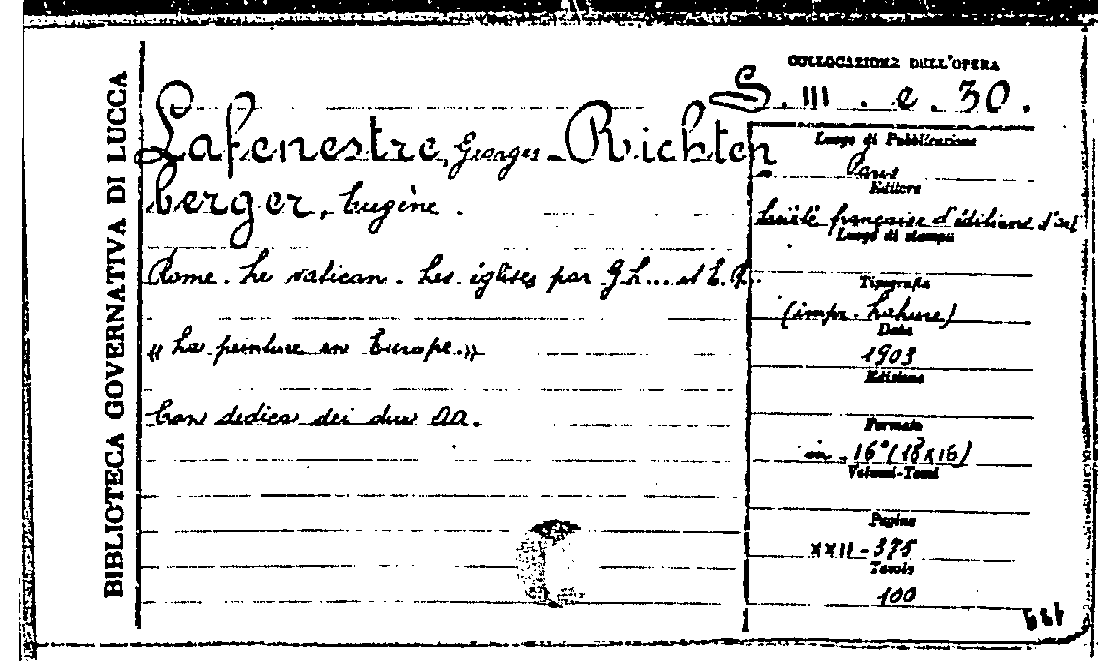 BIBLIOTECA GOVERNATIVA DI LUCCA
COLLOCAZIONE DELL'OPERA
S. III . e . 30.
Lafenestre, Georges - Richten
berger, Eugène.
Rome. Le vatican. Les églises par G.L... et E.R..
« La peinture en Europe.»
Con dedica dei due AA.
Luogo di Pubblicazione
Paris
Editore
Société française d'éditions d'art
Luogo di stampa
Tipografia
(impr. Lahure)
Data
1903
Edizione
Formato
in-16° (18x16)
Volumi-Tomi
Pagine
XXII-375
Tavole
100